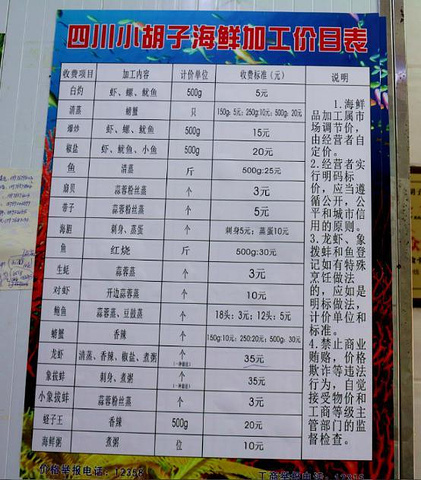 四川小胡子海鲜加工价目表
收费项目 加工内容 计价单位 收费标准(元) 说明
白灼 虾、螺、鱿鱼 500g 5元
清蒸 螃蟹 只 150g:5元; 250g:10元; 500g:20元
爆炒 虾、螺、鱿鱼 500g 15元
椒盐 虾、鱿鱼、小鱼 500g 20元
鱼 清蒸 斤 500g:25元
扇贝 蒜蓉粉丝蒸 个 3元
带子 蒜蓉粉丝蒸 个 5元
海胆 刺身、蒸蛋 个 刺身5元; 蒸蛋10元
鱼 红烧 斤 500g:30元
生蚝 蒜蓉蒸 个 3元
对虾 开边蒜蓉蒸 个 10元
鲍鱼 蒜蓉蒸、豆豉蒸 个 18头:3元; 12头:5元
螃蟹 香辣 个 150g:10元; 250:20元; 500g:30元
龙虾 清蒸、香辣、椒盐、煮粥 个 35元
象拔蚌 刺身、煮粥 个 35元
小象拔蚌 蒜蓉粉丝蒸 个 3元
蛏子王 香辣 500g 20元
海鲜粥 煮粥 位 10元
1.海鲜
品加工属市
场调节价,
由经营者自
定价。
2.经营者实
行明码标
价,应当遵
循公开,公
平和城市信
用的原则。
3.龙虾、象
拨蚌和鱼登
记如有特殊
烹饪做法
的,应如是
明标做法,
计价单位和
标准。
4.禁止商业
贿赂,价格
欺诈等违法
行为,自觉
接受物价和
工商等级主
管部门的监
督检查。
价格举报电话:12358
工商举报电话:12315